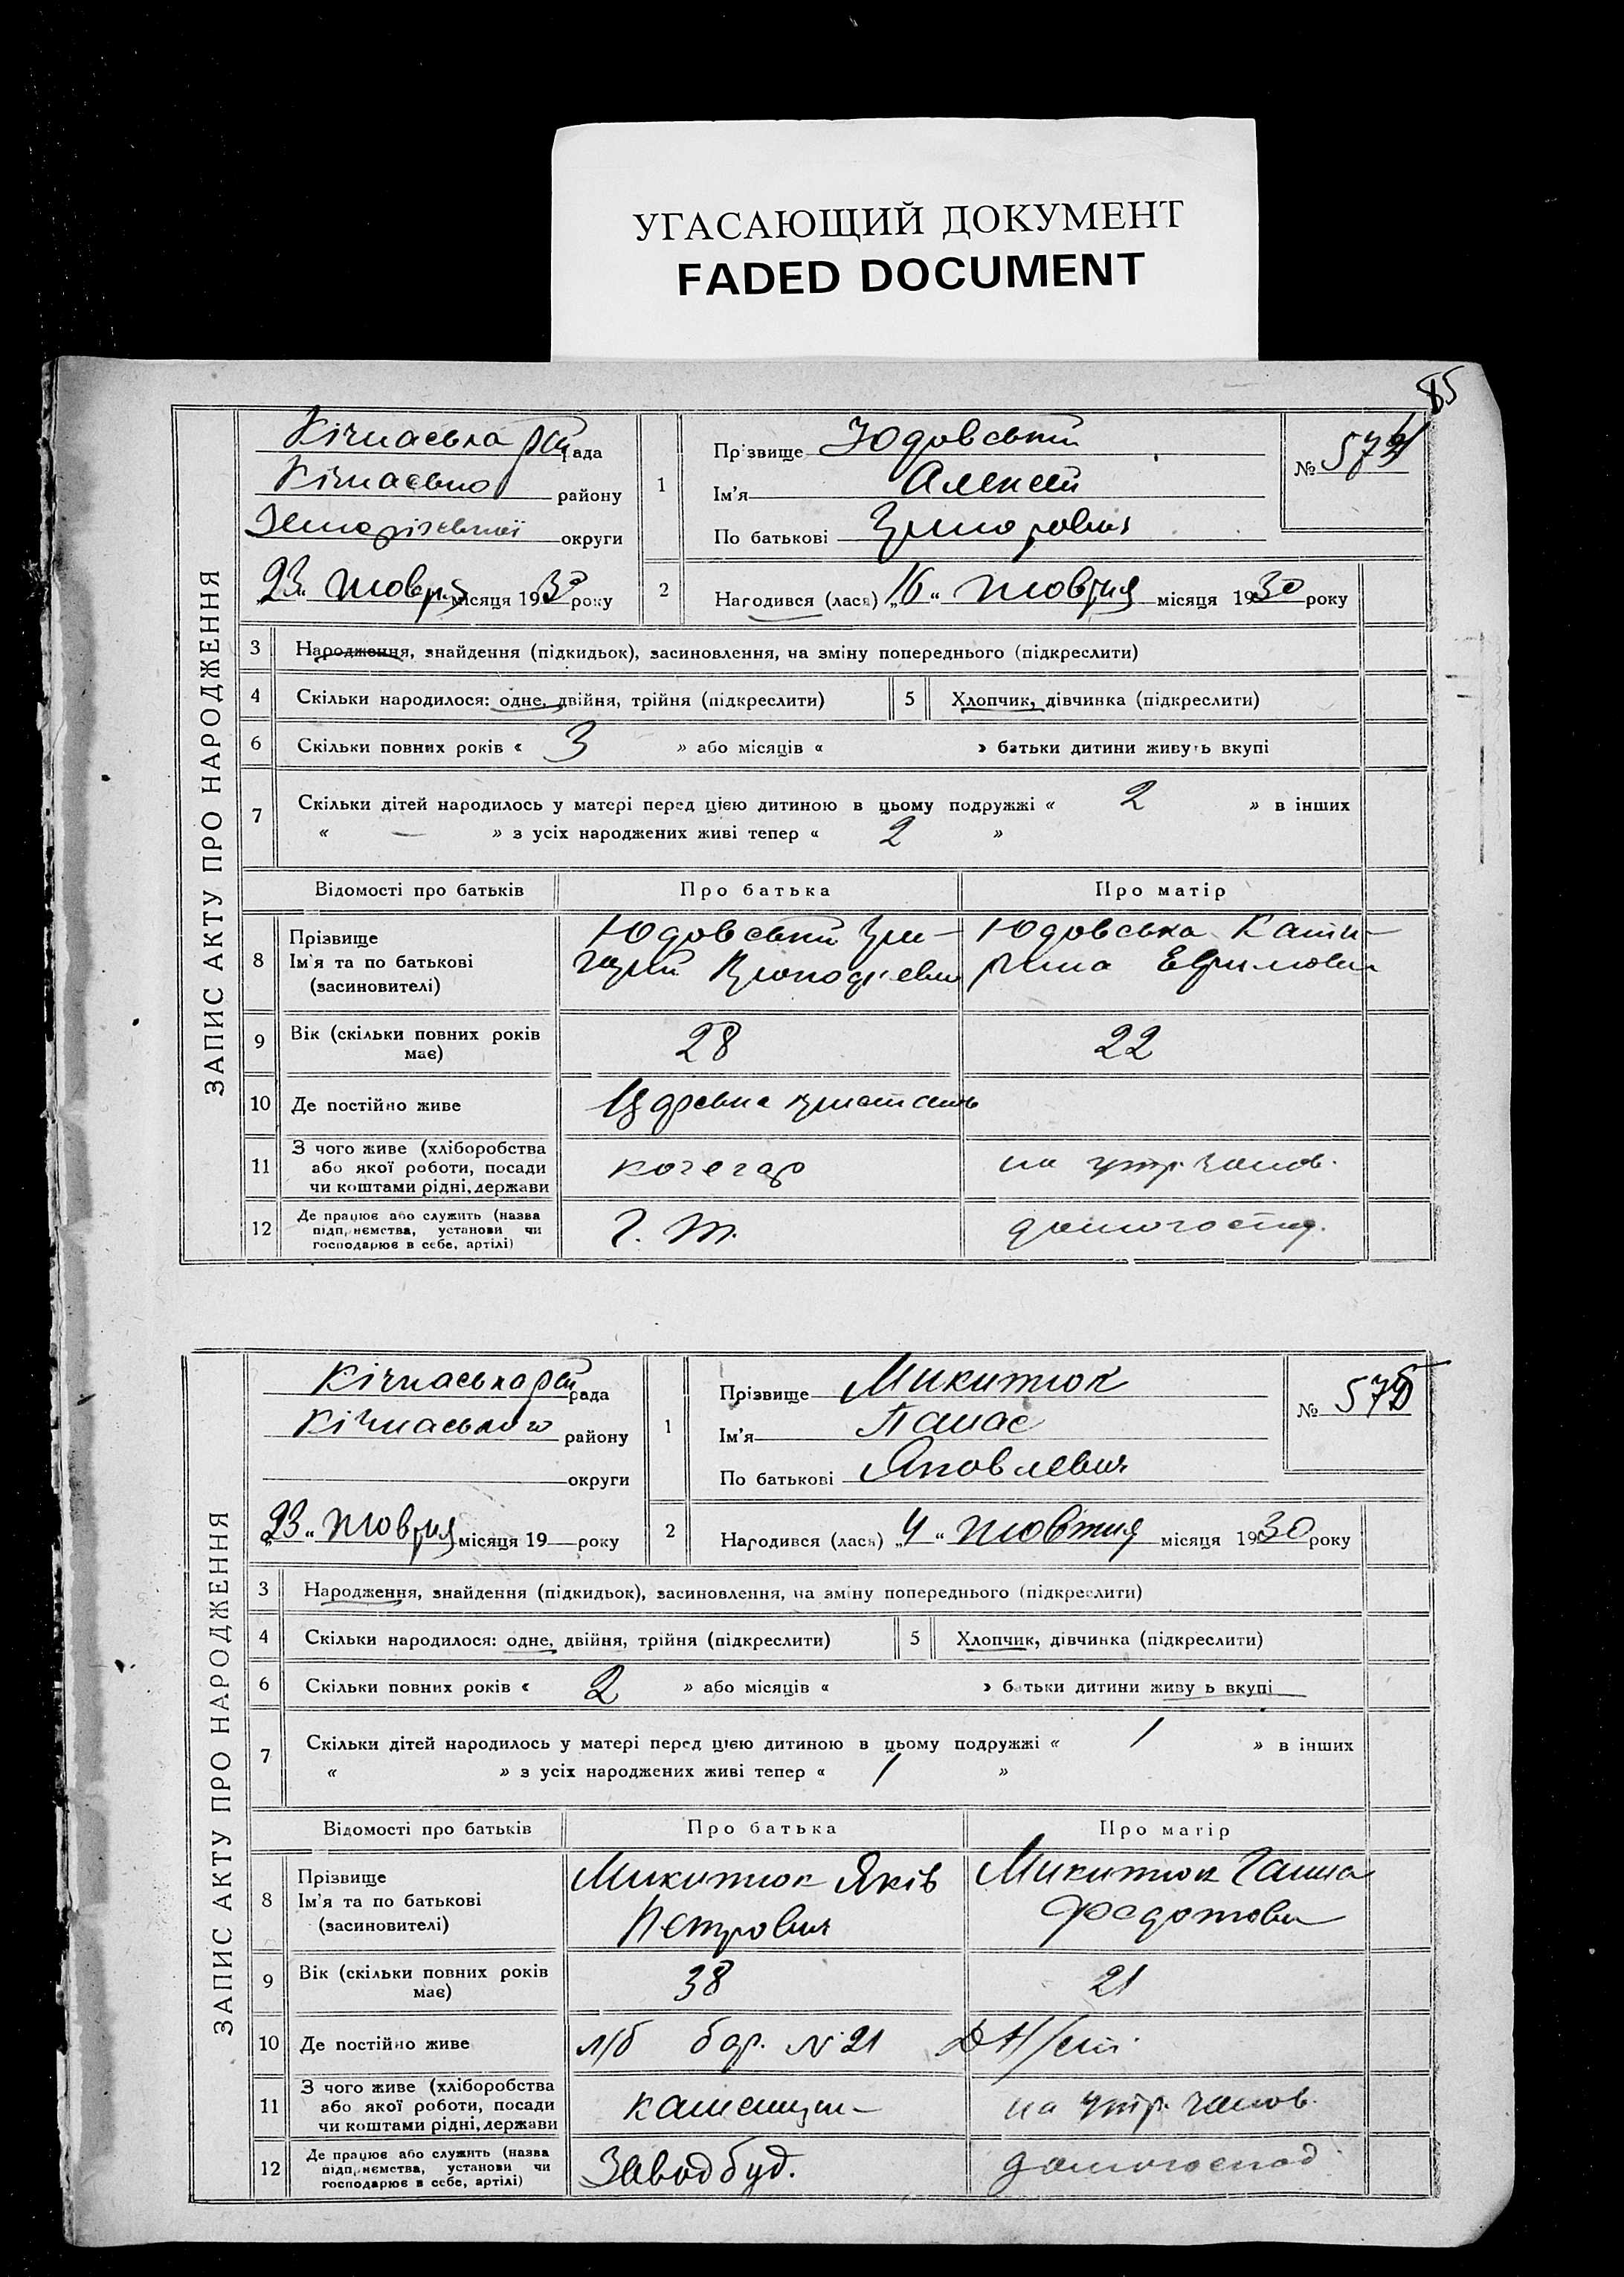 УГАСАЮЩИЙ ДОКУМЕНТ
FADED DOCUMENT
85
ЗАПИС АКТУ ПРО НАРОДЖЕННЯ
Кічкаська рада
Кічкаського району
округи
„23“ жовтня місяця 1930 року
1
Прізвище Юдовський
Ім'я Алексей
По батькові
№ 574
2
Народився (лася) „16“ жовтня місяця 1930 року
3 Народження, знайдення (підкидьок), засиновлення, на зміну попереднього (підкреслити)
4 Скільки народилося: одне, двійня, трійня (підкреслити)
5 Хлопчик, дівчинка (підкреслити)
6 Скільки повних років « 3 » або місяців « » батьки дитини живуть вкупі
7 Скільки дітей народилось у матері перед цією дитиною в цьому подружжі « 2 » в інших
« — » з усіх народжених живі тепер « 2 »
Відомості про батьків Про батька Про матір
8 Прізвище
Ім'я та по батькові
(засиновителі)
Юдовський
Юдовська Кате-
рина
9 Вік (скільки повних років
має)
28
22
10 Де постійно живе
11 З чого живе (хліборобства
або якої роботи, посади
чи коштами рідні, держави
кочегар
на утр. чолов.
12 Де працює або служить (назва
підприємства, установи чи
господарює в себе, артілі)
домогоспод.
ЗАПИС АКТУ ПРО НАРОДЖЕННЯ
Кічкаська рада
Кічкаського району
округи
„23“ жовтня місяця 19 — року
1
Прізвище Микитюк
Ім'я Панас
По батькові Яковлевич
№ 575
2
Народився (лася) „4“ жовтня місяця 1930 року
3 Народження, знайдення (підкидьок), засиновлення, на зміну попереднього (підкреслити)
4 Скільки народилося: одне, двійня, трійня (підкреслити)
5 Хлопчик, дівчинка (підкреслити)
6 Скільки повних років « 2 » або місяців « » батьки дитини живуть вкупі
7 Скільки дітей народилось у матері перед цією дитиною в цьому подружжі « 1 » в інших
« » з усіх народжених живі тепер « 1 »
Відомості про батьків Про батька Про матір
8 Прізвище
Ім'я та по батькові
(засиновителі)
Микитюк Яків
Петрович
Микитюк Ганна
Федотовн
9 Вік (скільки повних років
має)
38
21
10 Де постійно живе
л/б бар. № 21
11 З чого живе (хліборобства
або якої роботи, посади
чи коштами рідні, держави
каменщик
на утр. чолов.
12 Де працює або служить (назва
підприємства, установи чи
господарює в себе, артілі)
Заводбуд.
домогоспод